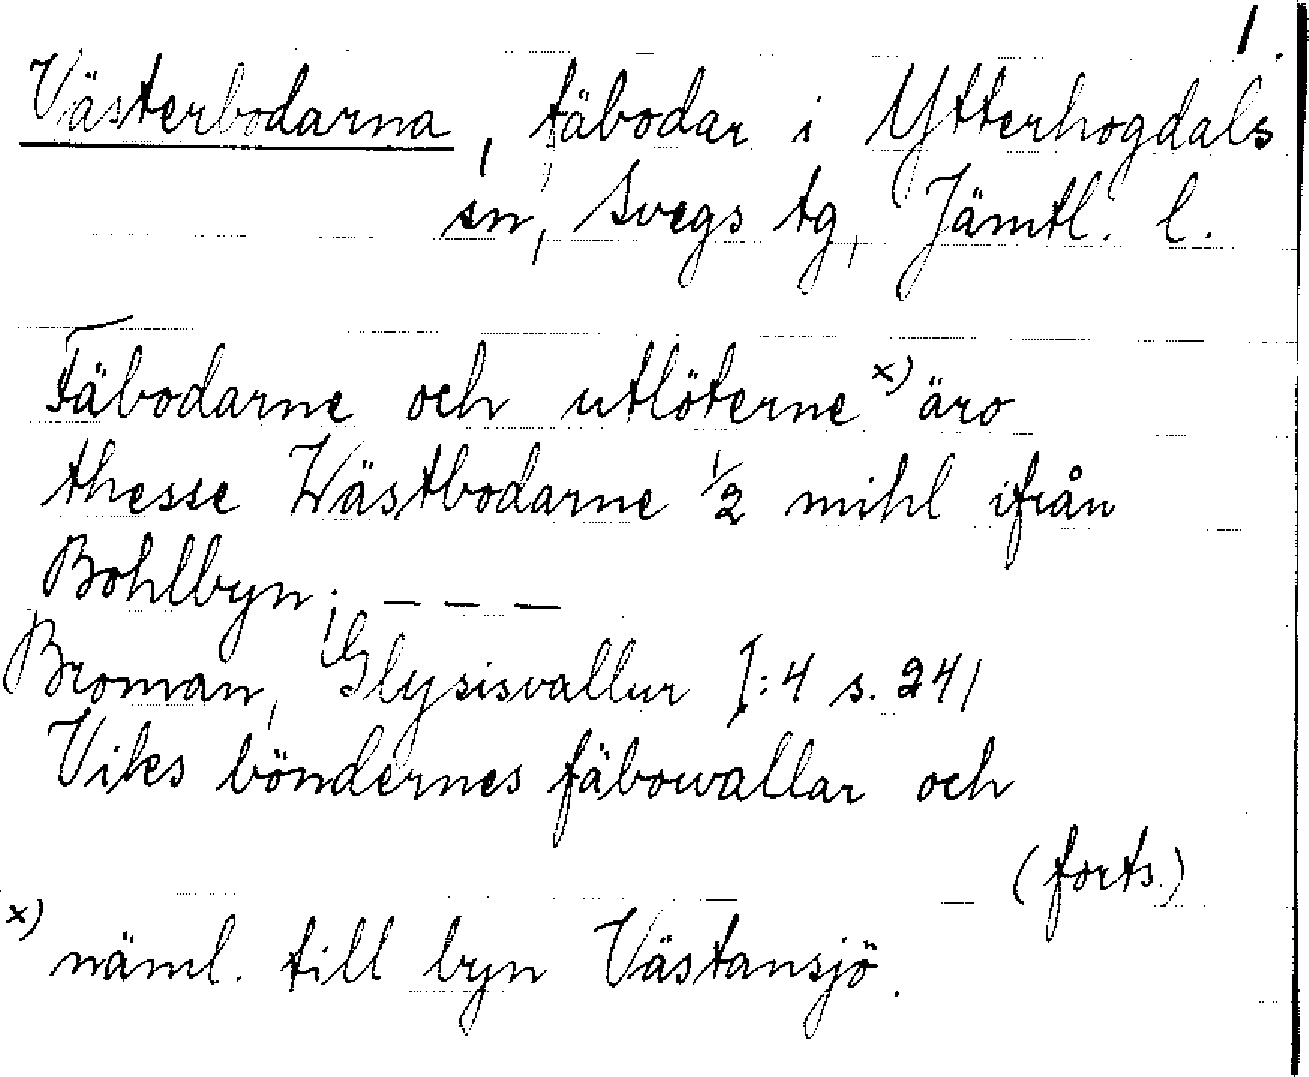 1.
Västerbodarna, fäbodar i Ytterhogdals
sn, Svegs tg, Jämtl. l.
Fäbodarne och utlöterne x) äro
thesse Wästbodarne 1/2 mihl ifrån
Bohlbyn; – – –
Broman, Glysisvallur I:4 s. 241
Viks böndernes fäbowallar och
(forts.)
x) näml. till byn Västansjö.